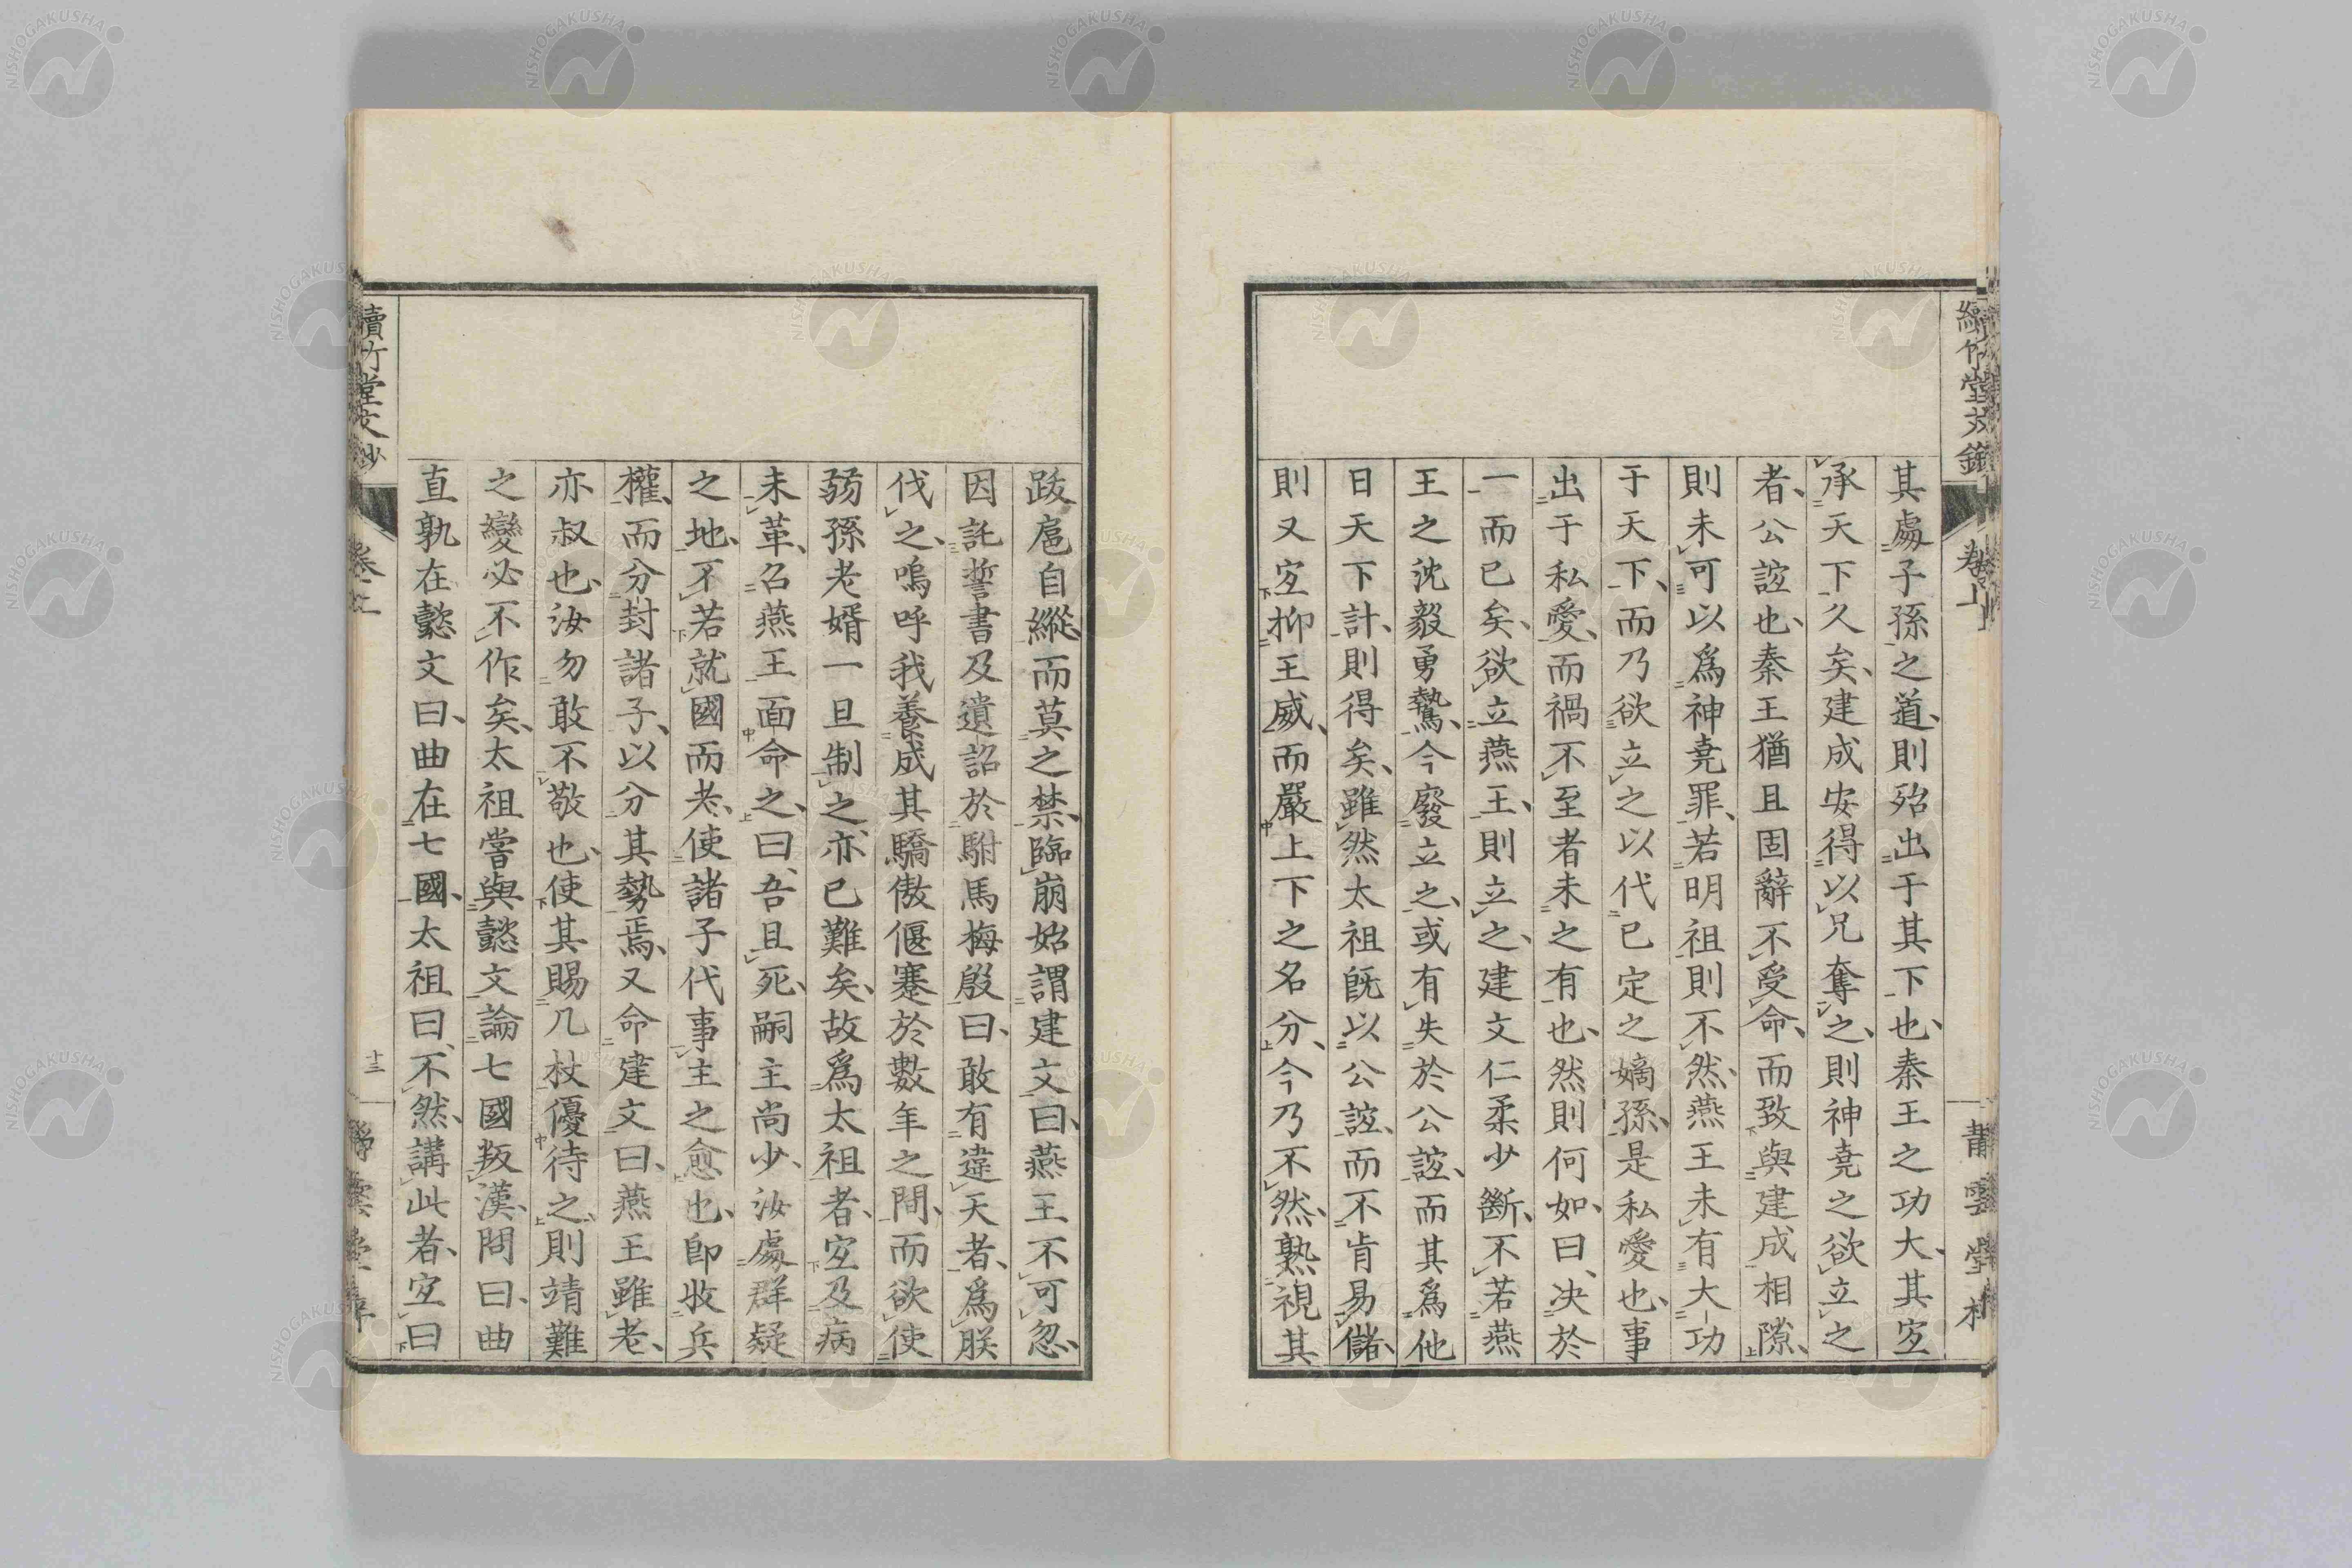 其處子孫之道、則殆出于其下也、秦王之功大、其宜
承天下久矣、建成安得以兄奪之、則神堯之欲立之
者、公誼也、秦王猶且固辭不受命、而致與建成相隙、
則未可以爲神堯罪、若明祖則不然、燕王未有大功
于天下、而乃欲立之以代已定之嫡孫、是私愛也、事
出于私愛、而禍不至者未之有也、然則何如、曰、決於
一而已矣、欲立燕王、則立之、建文仁柔少斷、不若燕
王之沈毅勇鷙、今廢立之、或有失於公誼、而其爲他
日天下計、則得矣、雖然太祖旣以公誼、而不肯易儲、
則又宜抑王威、而嚴上下之名分、今乃不然、熟視其
跋扈自縱、而莫之禁、臨崩始謂建文曰、燕王不可忽、
因託誓書及遺詔於駙馬梅殷曰、敢有違天者、爲朕
伐之、嗚呼我養成其驕傲偃蹇於數年之間、而欲使
弱孫老婿一旦制之、亦已難矣、故爲太祖者、宜及病
未革、召燕王面命之、曰、吾且死、嗣主尚少、汝處群疑
之地、不若就國而老、使諸子代事主之愈也、卽收兵
權、而分封諸子、以分其勢焉、又命建文曰、燕王雖老、
亦叔也、汝勿敢不敬也、使其賜几杖優待之、則靖難
之變必不作矣、太祖嘗與懿文論七國叛漢、問曰、曲
直孰在懿文曰、曲在七國、太祖曰、不然、講此者、宜曰
續竹堂文鈔
卷上
十三